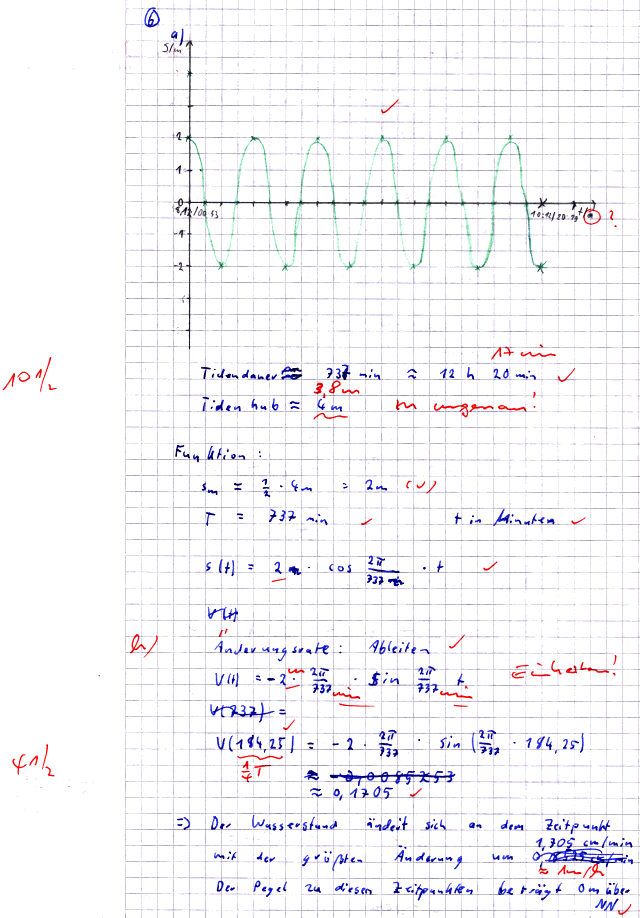 6
a)
S/m
2
1
0
-1
-2
8.12/00:53
10.12/20:33
t/a ?
17 min
Tidendauer ≈ 737 min ≈ 12 h 20 min ✓
10 1/2
3,8m
Tidenhub ≈ 4m zu ungenau!
Funktion:
sm = 1/2 · 4m = 2m (✓)
T = 737 min ✓ t in Minuten ✓
s(t) = 2 · cos 2π/737 · t ✓
V(t)
b)
Änderungsrate: Ableiten ✓
V(t) = -2 m · 2π/737 min · sin 2π/737 min t Einheiten!
V(737) =
V(184,25) = -2 · 2π/737 · sin (2π/737 · 184,25)
1/4 T
4 1/2
≈ -0,0085253
≈ 0,1705 ✓
=> Der Wasserstand ändert sich an dem Zeitpunkt
1,705 cm/min
mit der größten Änderung um
≈ 1m/h
Der Pegel zu diesen Zeitpunkten beträgt 0m über
NN ✓